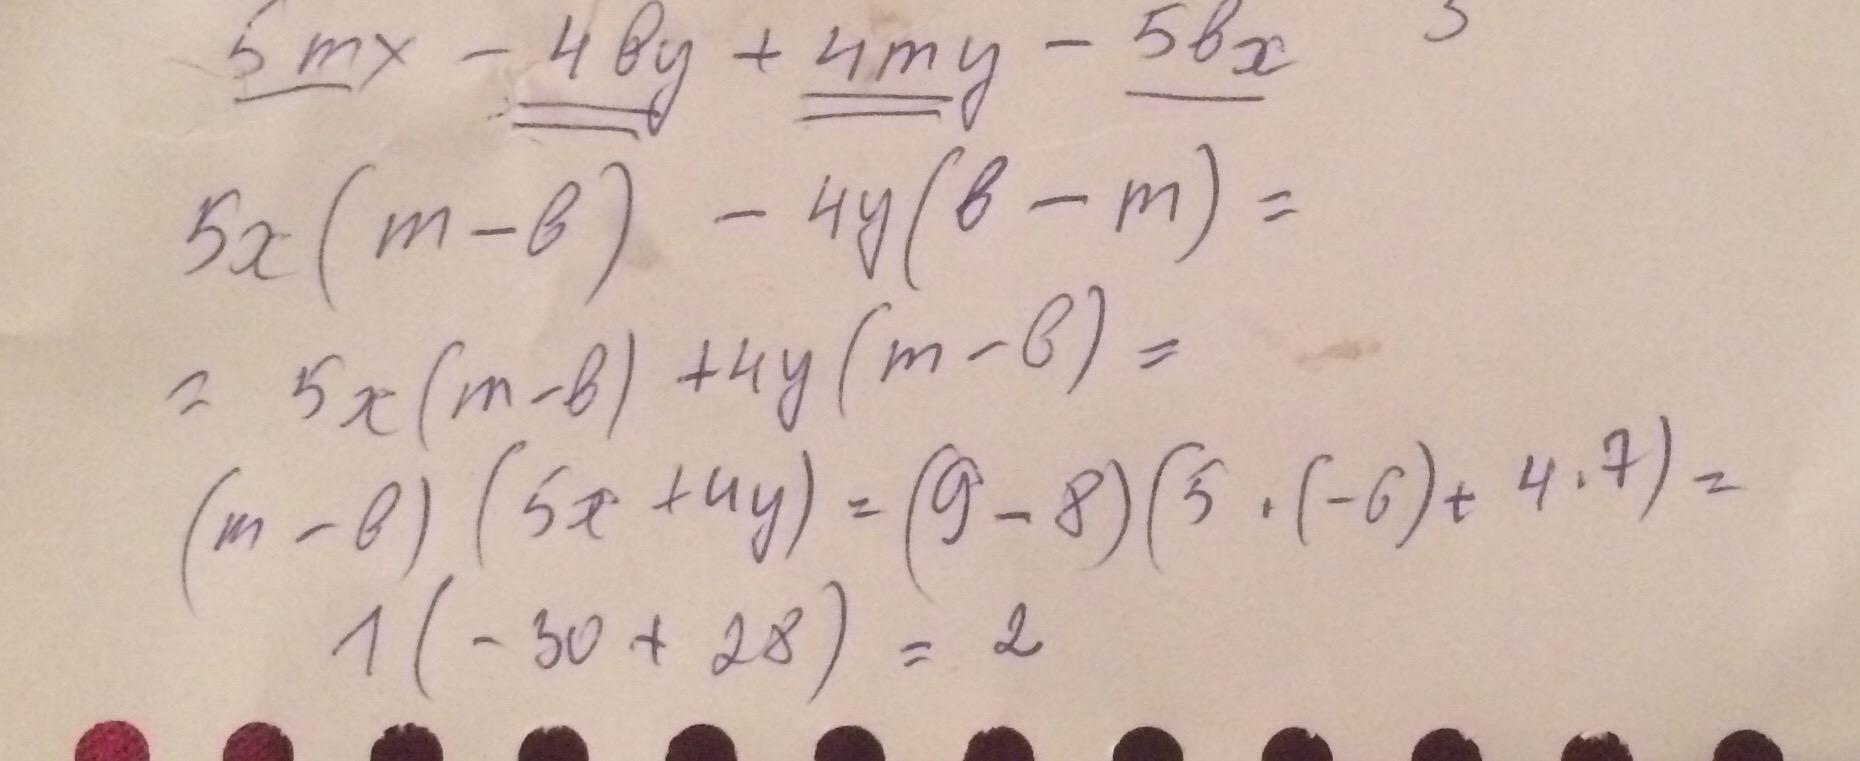 5mx - 4by + 4my - 5bx
5x(m-b) - 4y(b-m) =
= 5x(m-b) + 4y(m-b) =
(m-b)(5x+4y) = (9-8)(5·(-6)+4·7) =
1(-30+28) = 2